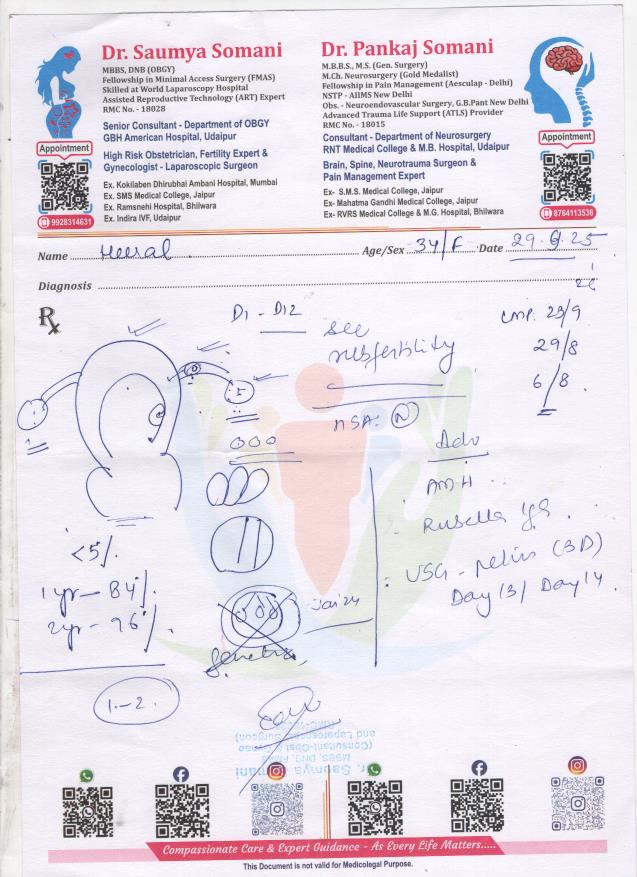 Dr. Saumya Somani
MBBS, DNB (OBGY)
Fellowship in Minimal Access Surgery (FMAS)
Skilled at World Laparoscopy Hospital
Assisted Reproductive Technology (ART) Expert
RMC No. - 18028
Senior Consultant - Department of OBGY
GBH American Hospital, Udaipur
High Risk Obstetrician, Fertility Expert &
Gynecologist - Laparoscopic Surgeon
Ex. Kokilaben Dhirubhai Ambani Hospital, Mumbai
Ex. SMS Medical College, Jaipur
Ex. Ramsnehi Hospital, Bhilwara
Ex. Indira IVF, Udaipur
Appointment
9928314631
Dr. Pankaj Somani
M.B.B.S., M.S. (Gen. Surgery)
M.Ch. Neurosurgery (Gold Medalist)
Fellowship in Pain Management (Aesculap - Delhi)
NSTP - AIIMS New Delhi
Obs. - Neuroendovascular Surgery, G.B.Pant New Delhi
Advanced Trauma Life Support (ATLS) Provider
RMC No. - 18015
Consultant - Department of Neurosurgery
RNT Medical College & M.B. Hospital, Udaipur
Brain, Spine, Neurotrauma Surgeon &
Pain Management Expert
Ex- S.M.S. Medical College, Jaipur
Ex- Mahatma Gandhi Medical College, Jaipur
Ex- RVRS Medical College & M.G. Hospital, Bhilwara
Appointment
8764113536
Name Age/Sex 34/F Date 29.9.25
Diagnosis
Rx
D1 - D12
LMP. 29/9
29/8
6/8
subfertility
HSA: N
Adv
AMH
Rubella IgG
USG - pelvis (3D)
Day 13/ Day 14
<5%
1 yr - 84%
2 yr - 96%
1-2
Genetic
Compassionate Care & Expert Guidance - As Every Life Matters.....
This Document is not valid for Medicolegal Purpose.